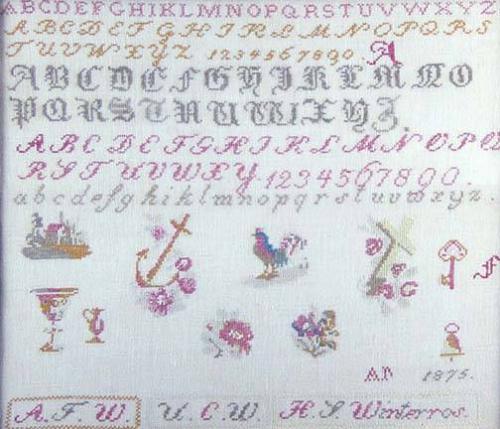 ABCDEFGHIJKLMNOPQRSTUVWXYZ
ABCDEFGHIJKLMNOPQRS
TUVWXYZ 1234567890 A
ABCDEFGHIKLMNO
PQRSTUVWXYZ.
ABCDEFGHIKLMNOPQ
RSTUVWXY 1234567890.
abcdefghiklmnopqrstuvwxyz.
F
AP 1875.
A.F.W. U.C.W. H.S. Winterros.